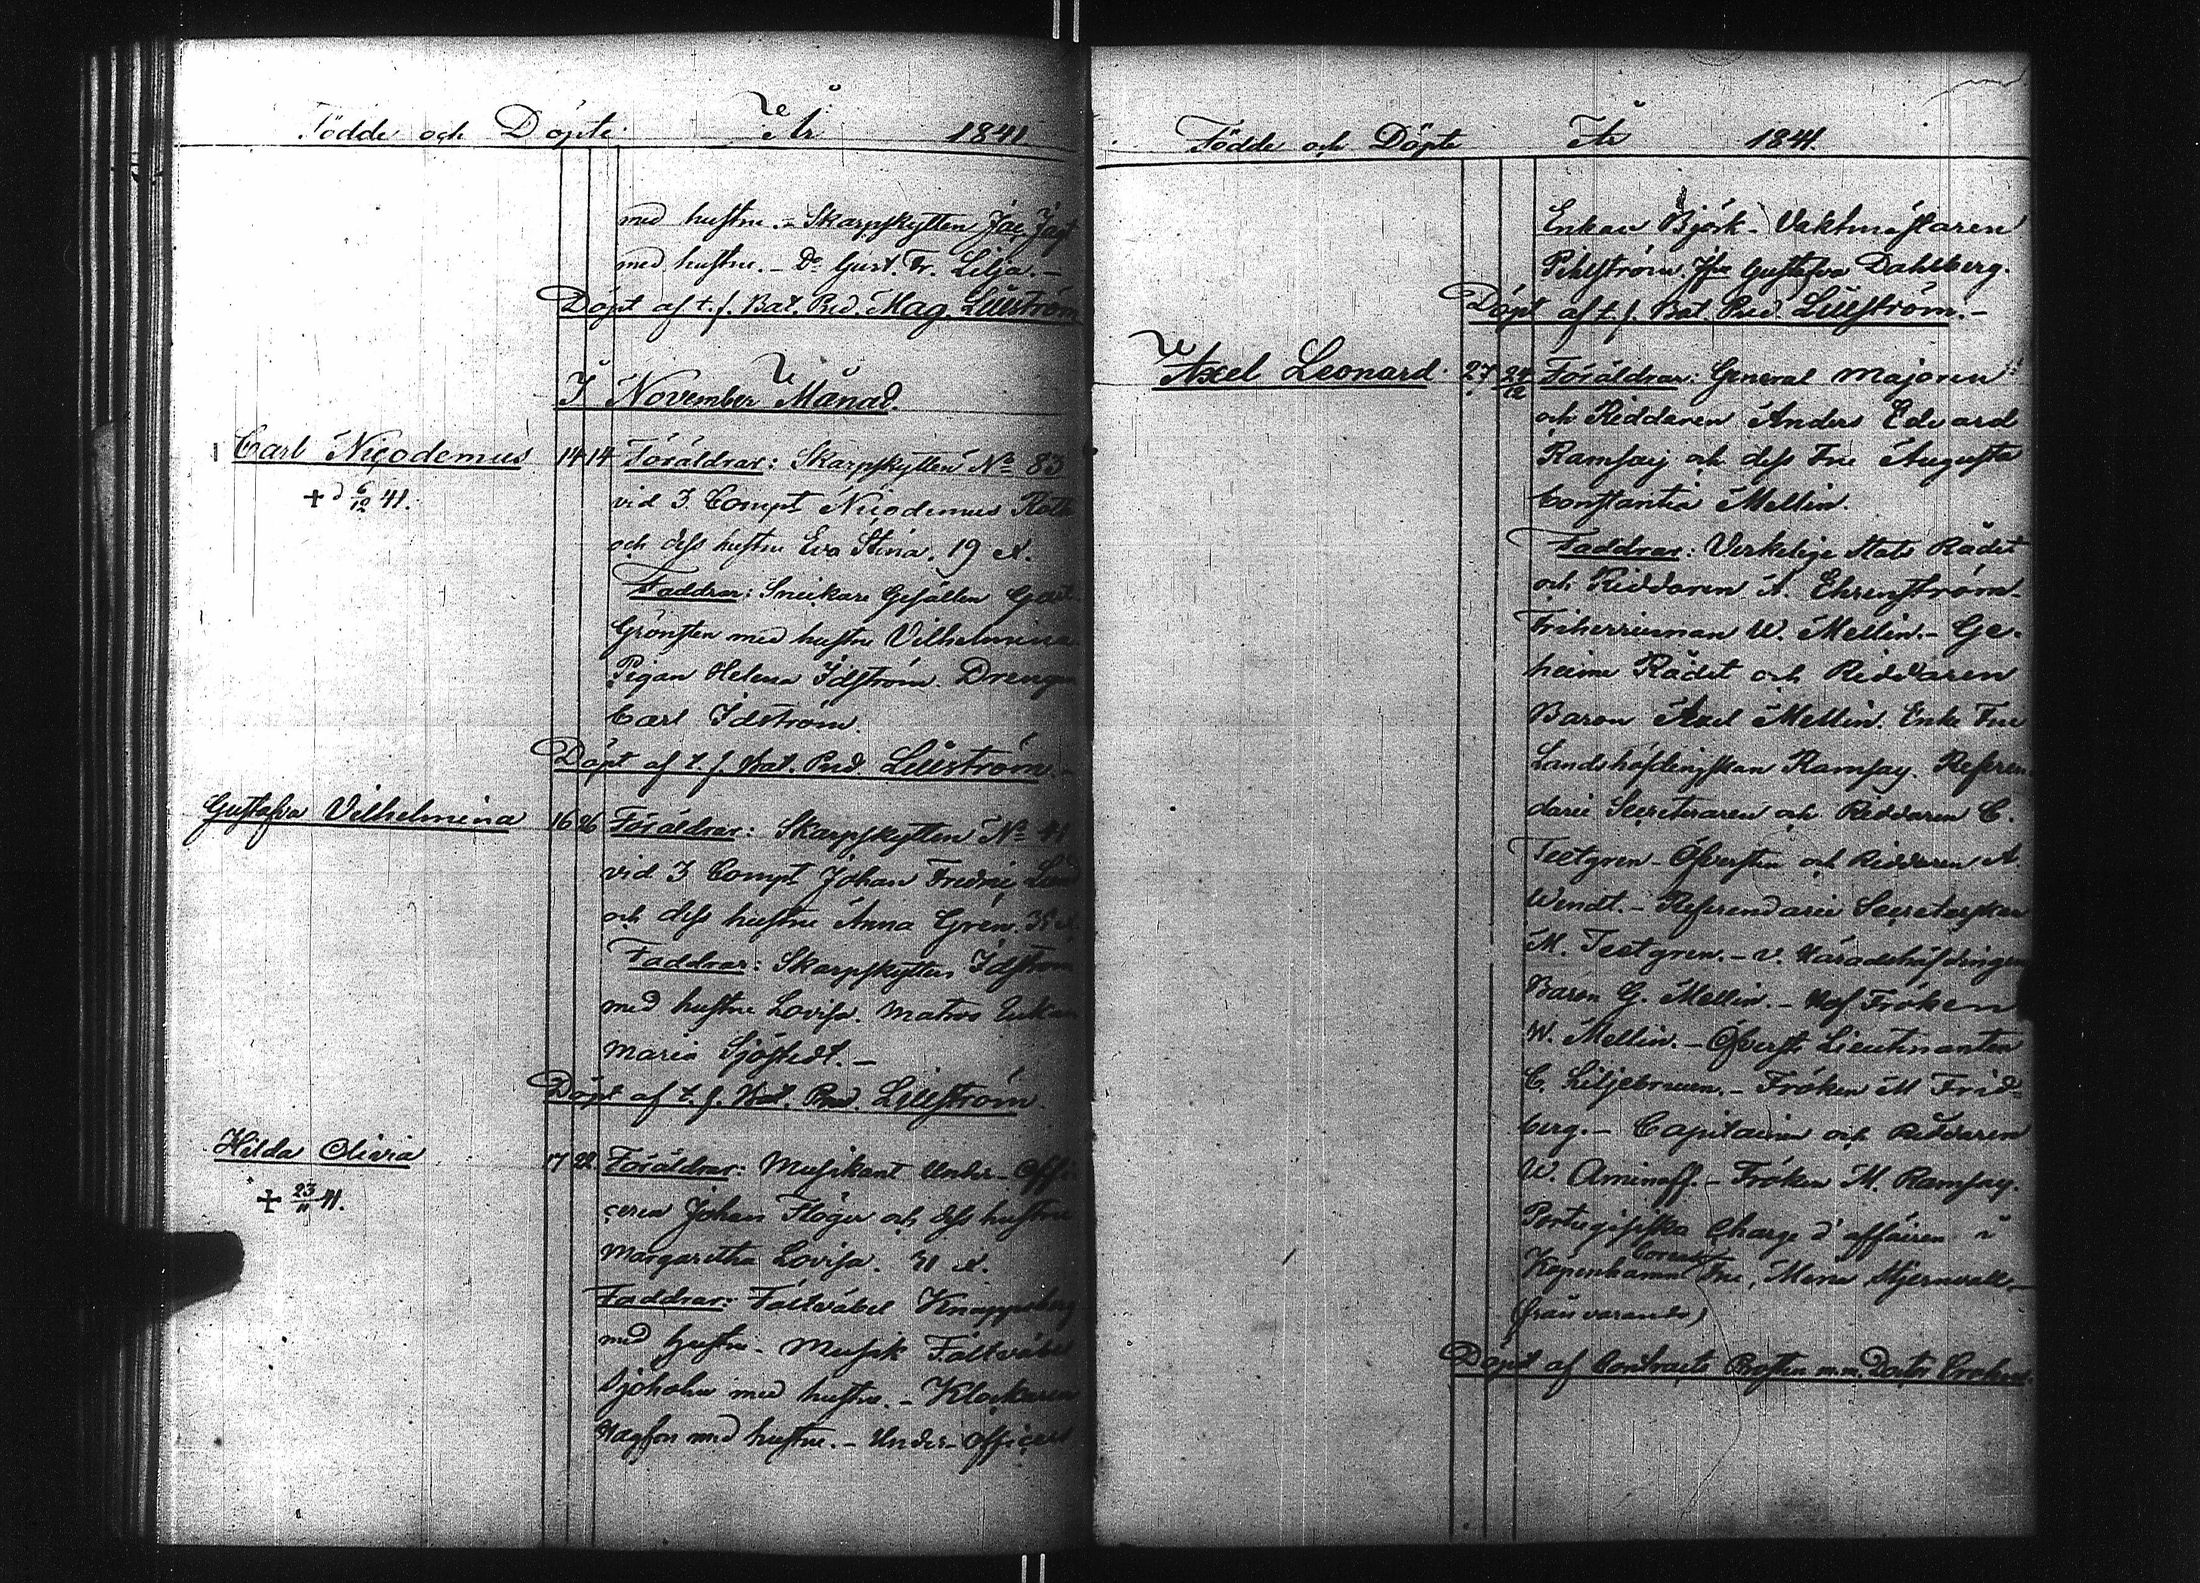 Födde och Döpte År 1841.
med hustru. - Skarpskytten Jac.
med hustru. - Do Gust. Fr. Lilja. -
Döpt af t. f. Bat. Pred. Mag. Lillström
I November Månad.
Carl Nicodemus 14 14 Föräldrar: Skarpskytten No 83
+ d 6/12 41.
vid 3. Compt Nicodemus Roth
och dess hustru Eva Stina. 19 A.
Faddrar: Snickare Gesällen Gust.
Grönsten med hustru Vilhelmina
Pigan Helena Idström. Drengen
Carl Idström.
Döpt af t. f. Bat. Pred. Lillström. -
Gustafva Vilhelmina 16 26 Föräldrar: Skarpskytten No 41
vid 3 Compt Johan Fredric
och dess hustru Anna Grén. 35 A.
Faddrar: Skarpskytten Idström
med hustru Lovisa. Matros Enkan
Maria Sjöstedt. -
Döpt af t. f. Bat. Pred. Lillström.
Hilda Olivia 17 22 Föräldrar: Musikant Under-Offi-
+ 23/11 41.
ceren Johan Flöger och dess hustru
Margaretha Lovisa. 31 A.
Faddrar: Fältväbel
med hustru - Musik Fältväbel
Sjöholm med hustru. - Klockaren
Hagfors med hustru. - Under-Officer
Födde och Döpte År 1841.
Enkan Björk - Vaktmästaren
Pihlström. Jfru Gustafva Dahlberg.
Döpt af t. f. Bat Pred Lillström. -
Axel Leonard. 27. 24/12 Föräldrar: General Majoren
och Riddaren Anders Edvard
Ramsay och dess Fru Augusta
Constantia Mellin.
Faddrar: Verkelige Stats Rådet
och Riddaren A. Ehrenström -
Friherrinnan W. Mellin. - Ge-
heime Rådet och Riddaren
Baron Axel Mellin. Enke Fru
Landshöfdingskan Ramsay. Referen-
darie Secreteraren och Riddaren C.
Teetgren - Öfversten och Riddaren A.
Wendt. - Referendarie Secreterskan
M. Teetgren. - v. Häradshöfdingen
Baron G. Mellin. - Hof Fröken
W. Mellin. - Öfverste Lieutenanten
C. Liljebruun. - Fröken M Frid-
berg. - Capitaine och Riddaren
W. Aminoff. - Fröken M. Ramsay.
Portugisiska Charge d'affairen i
Kopenhamn Fru, Stjernvall -
(frånvarande)
Döpt af Contracts Prosten m.m. Doctor Crohns.